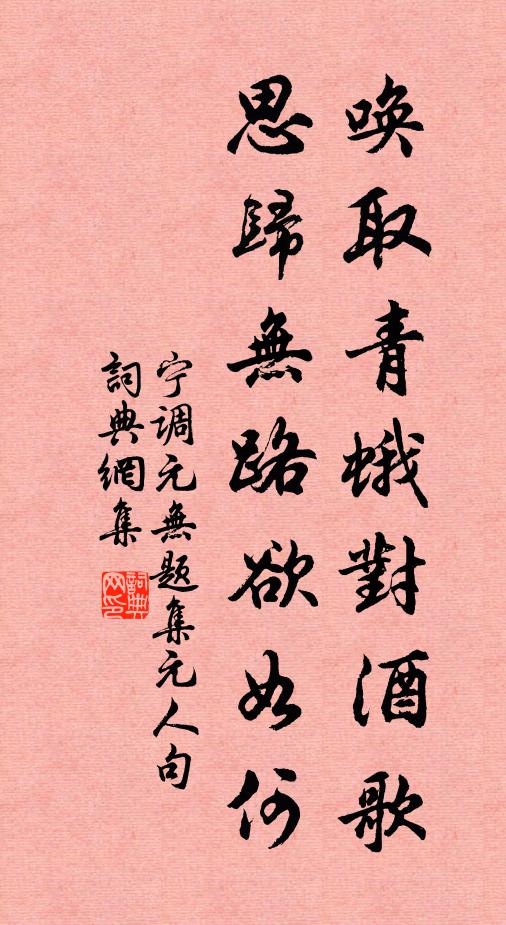 喚取青蛾對酒歌
思歸無路欲如何
宁调元無题集元人句
詞典網集
詞典網印